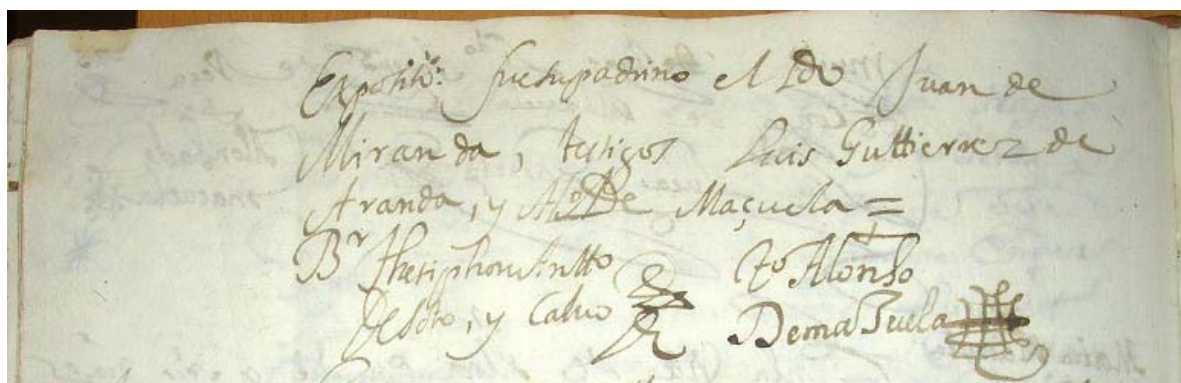 Expositos: fue su padrino el Ldo Juan de
Miranda, testigos Luis Guttierrez de
Aranda, y Alo De Maçuela =
Br Thesiphon Antto to Alonso
De Soto, y Calvo De maZuela